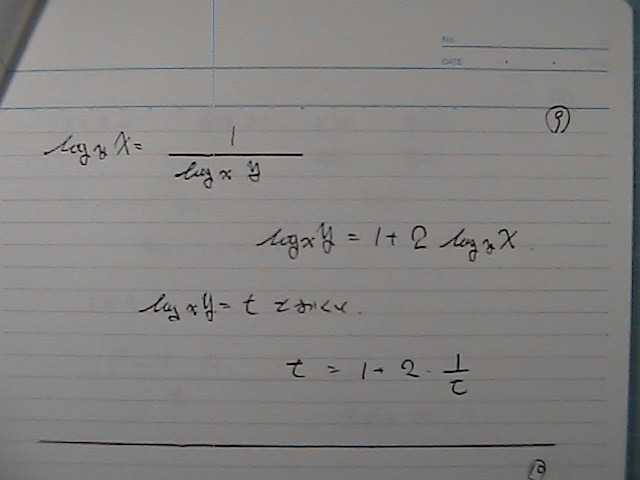 No.
DATE
⑨
log_y X = 1 / log_x y
log_x y = 1 + 2 log_y X.
log_x y = t とおくと.
t = 1 + 2 · 1/t
⑩